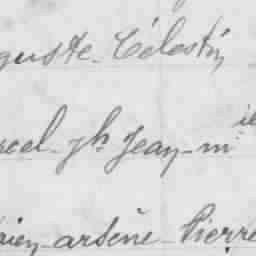 guste Célestin
rcel jh Jean-m ie
ien arsène Pierre